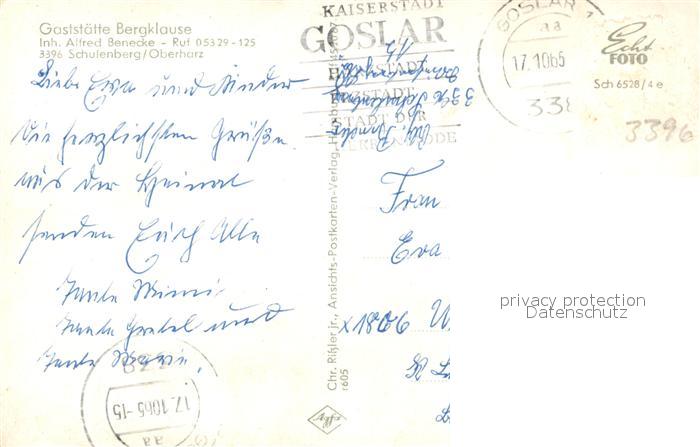 Gaststätte Bergklause
Inh. Alfred Benecke - Ruf 05329-125
3396 Schulenberg/Oberharz
Liebe Eva und Kinder
Die herzlichsten Grüße
aus der Heimat
senden Euch Alle
Tante Mimi
Tante Gretel und
Tante Marie.
17.10.65-15
aa
KAISERSTADT
GOSLAR
STADT DER
GOSLAR 1
aa
17.10.65
338
Echt
FOTO
Sch 6528/4 e
3396
Chr. Rißler jr., Ansichts-Postkarten-Verlag,
r605
Agfa
Frau
Eva
x1806 W
privacy protection
Datenschutz